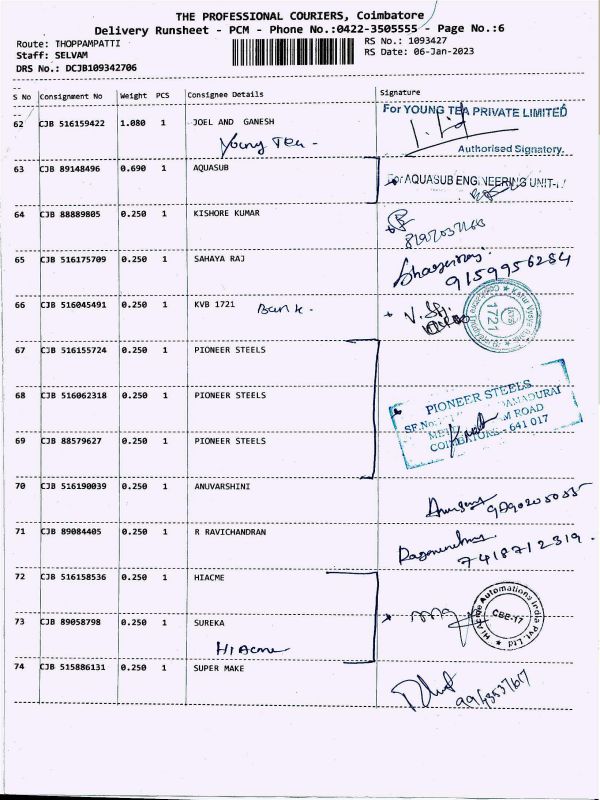 THE PROFESSIONAL COURIERS, Coimbatore
Delivery Runsheet - PCM - Phone No.:0422-3505555 - Page No.:6
Route: THOPPAMPATTI RS No.: 1093427
Staff: SELVAM RS Date: 06-Jan-2023
DRS No.: DCJB109342706
S No Consignment No Weight PCS Consignee Details Signature
62 CJB 516159422 1.080 1 JOEL AND GANESH For YOUNG TEA PRIVATE LIMITED
Young Tea -
Authorised Signatory.
63 CJB 89148496 0.690 1 AQUASUB For AQUASUB ENGINEERING UNIT-
64 CJB 88889805 0.250 1 KISHORE KUMAR
65 CJB 516175709 0.250 1 SAHAYA RAJ
9159956284
66 CJB 516045491 0.250 1 KVB 1721 Bank.
1721
67 CJB 516155724 0.250 1 PIONEER STEELS
68 CJB 516062318 0.250 1 PIONEER STEELS PIONEER STEELS
SF.No. ROAD
69 CJB 88579627 0.250 1 PIONEER STEELS - 641 017
70 CJB 516190039 0.250 1 ANUVARSHINI
71 CJB 89084405 0.250 1 R RAVICHANDRAN
7418712319.
72 CJB 516158536 0.250 1 HIACME
Automations India Pvt. Ltd
CBE-17
73 CJB 89058798 0.250 1 SUREKA
Hi Acme
74 CJB 515886131 0.250 1 SUPER MAKE